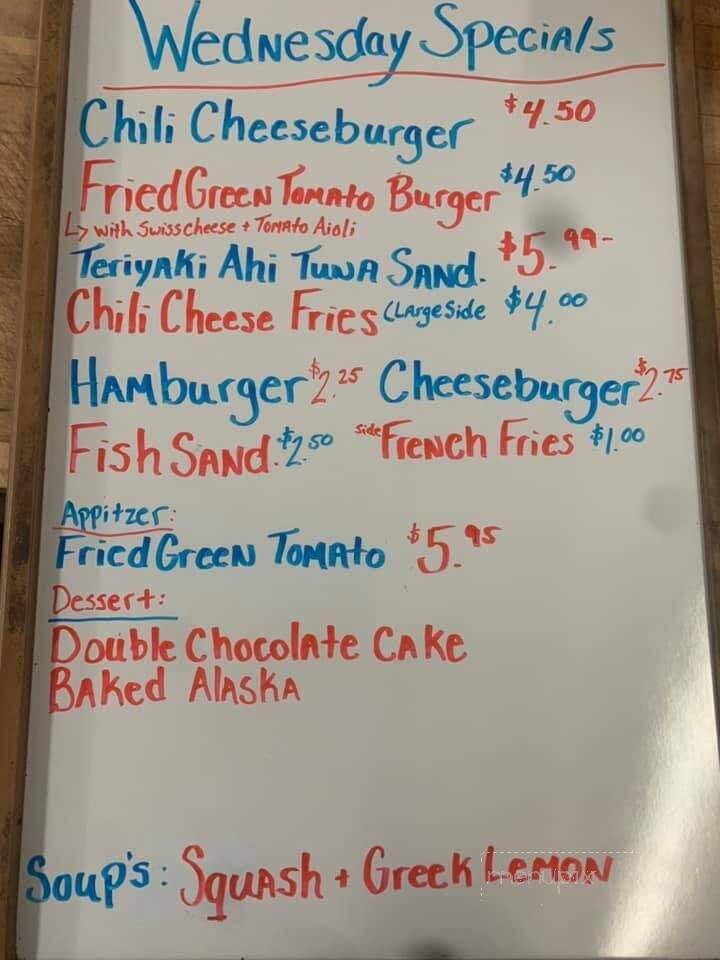 Wednesday Specials
Chili Cheeseburger $4.50
Fried Green Tomato Burger $4.50
↳ with Swiss cheese + Tomato Aioli
Teriyaki Ahi Tuna Sand. $5.99-
Chili Cheese Fries (Large Side $4.00
Hamburger $2.25 Cheeseburger $2.75
Fish Sand. $2.50 side French Fries $1.00
Appitzer:
Fried Green Tomato $5.95
Dessert:
Double Chocolate Cake
Baked Alaska
Soup's: Squash + Greek Lemon
menupix